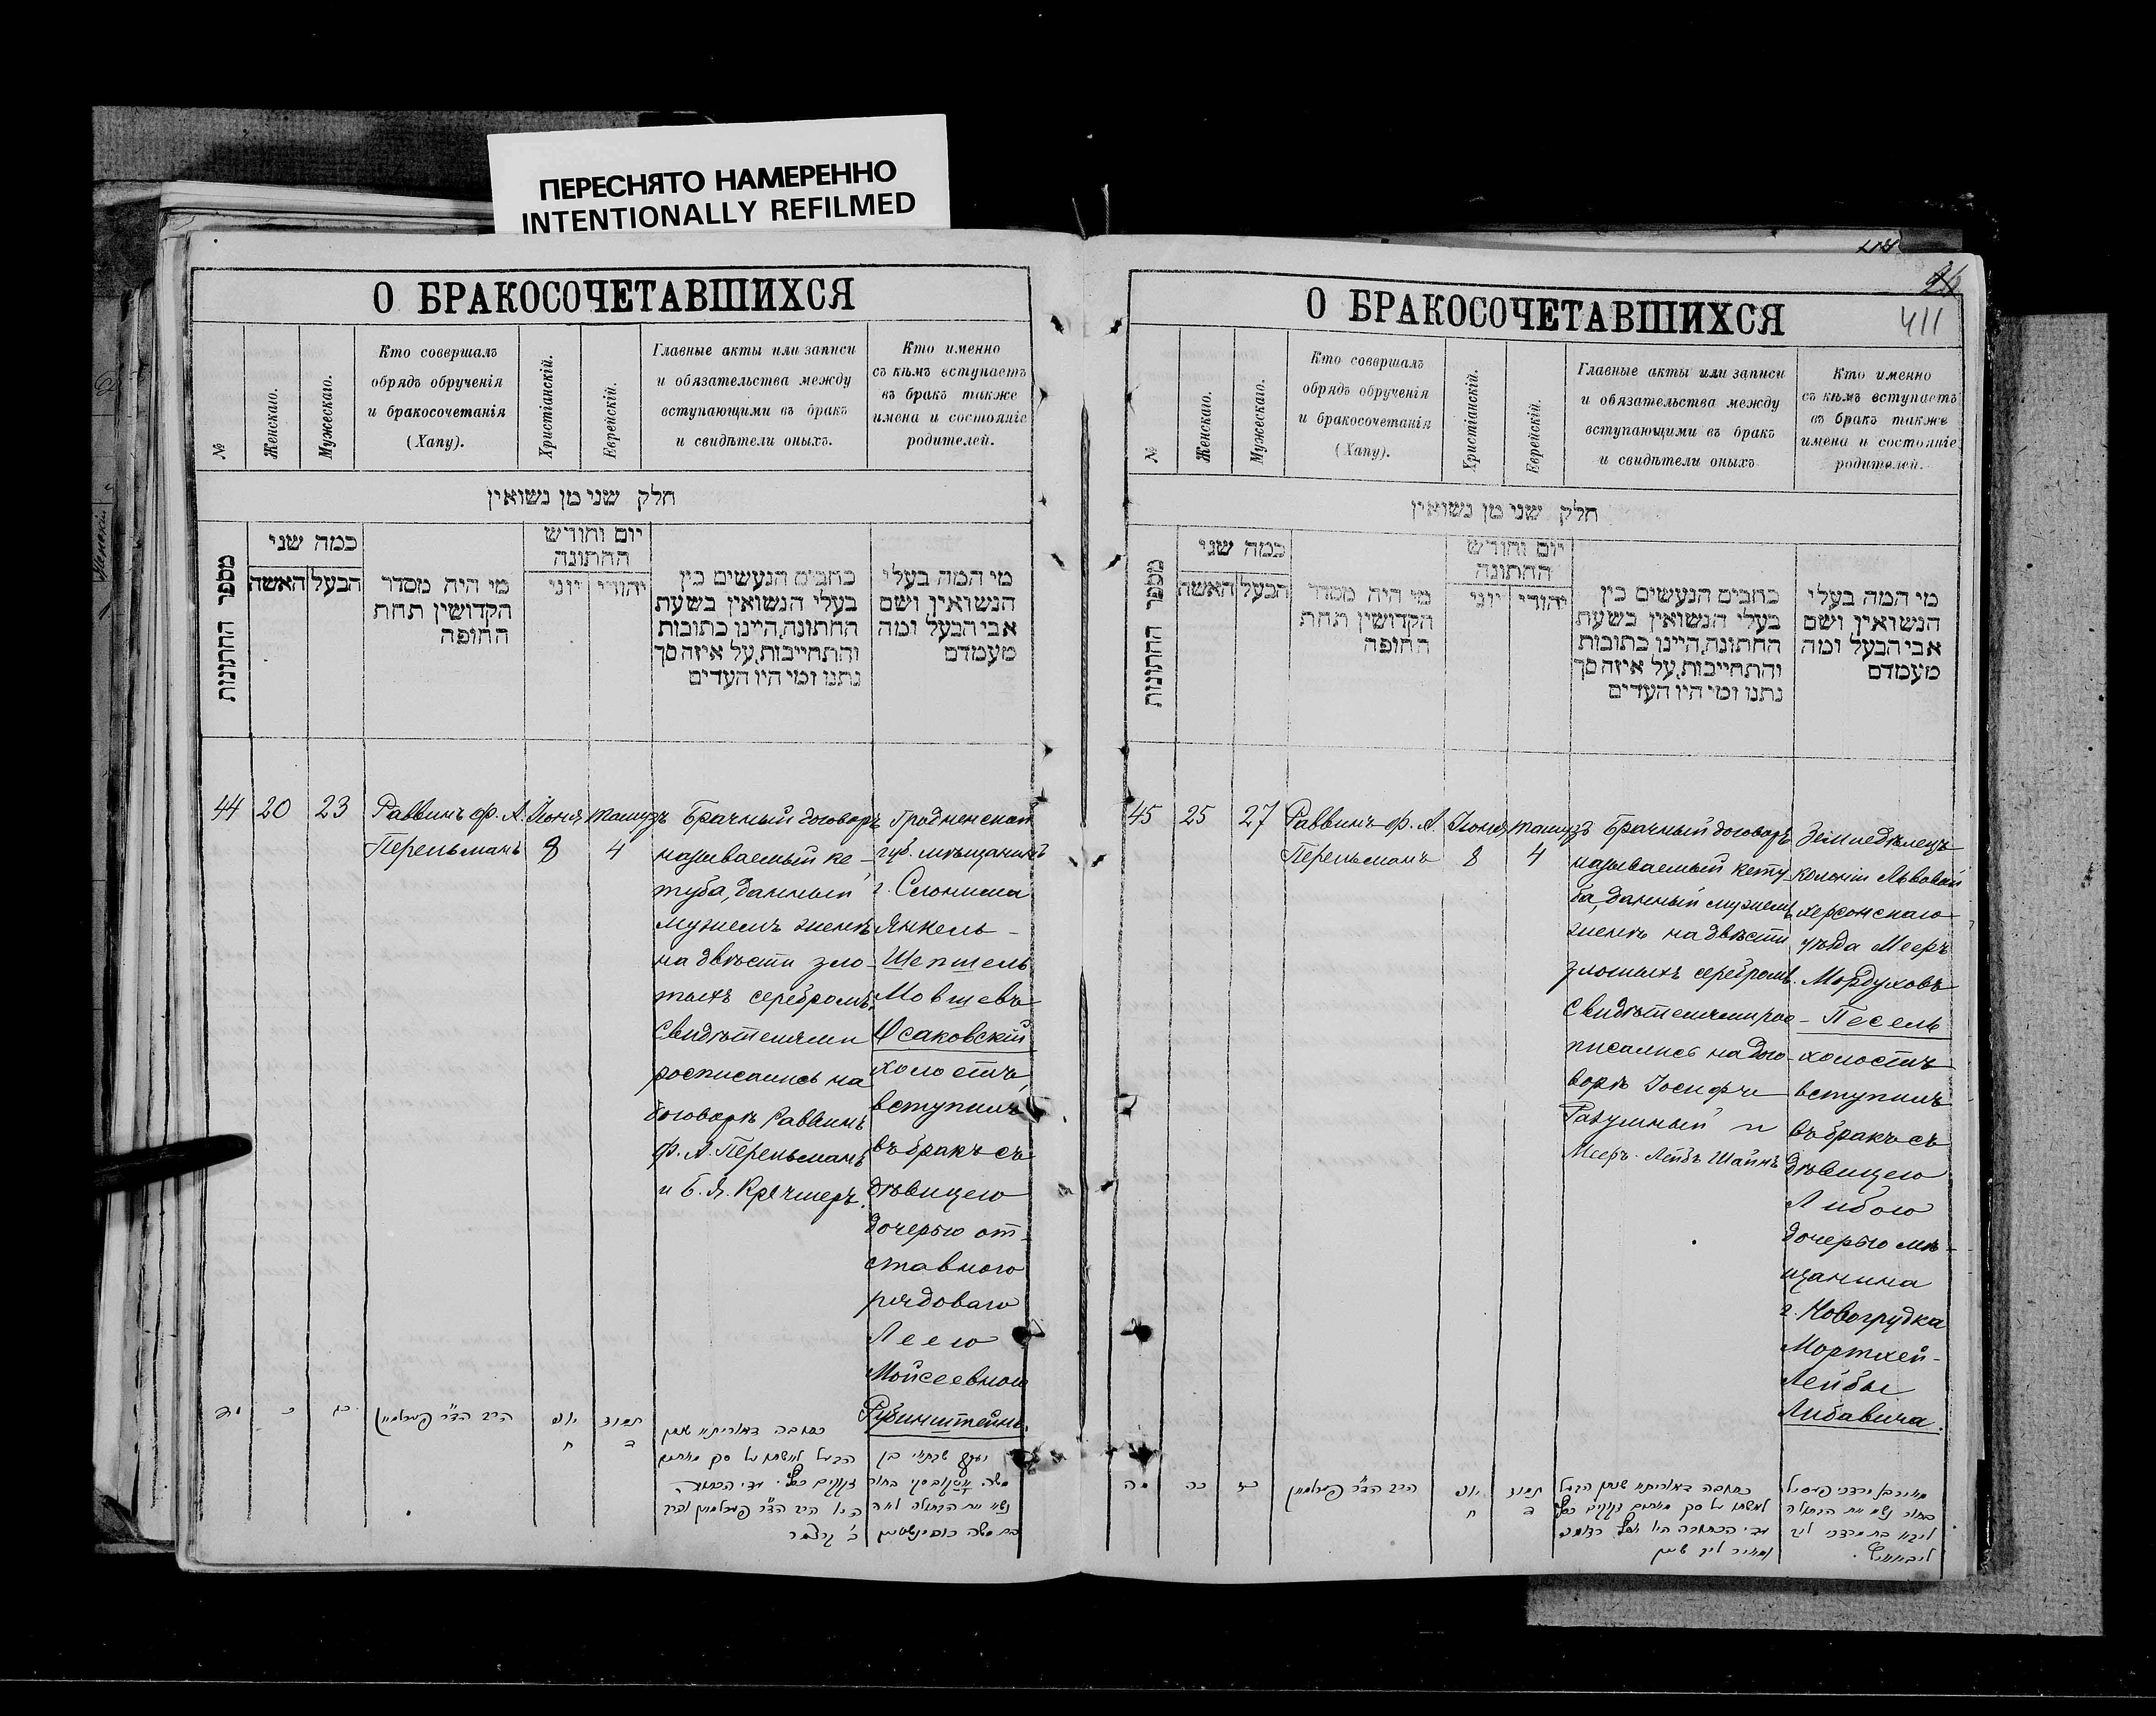 ПЕРЕСНЯТО НАМЕРЕННО
INTENTIONALLY REFILMED
О БРАКОСОЧЕТАВШИХСЯ
№
Женскаго.
Мужескаго.
Кто совершалъ
обрядъ обрученія
и бракосочетанія
(Хапу).
Христіанскій.
Еврейскій.
Главные акты или записи
и обязательства между
вступающими въ бракъ
и свидѣтели оныхъ.
Кто именно
съ кѣмъ вступаетъ
въ бракъ также
имена и состояніе
родителей.
חלק שני מן נשואין
מספר החתונות
כמה שני
האשה
הבעל
מי היה מסדר
הקדושין תחת
החופה
יום וחודש
החתונה
יוני
יהודי
כתבים הנעשים בין
בעלי הנשואין בשעת
החתונה, היינו כתובות
והתחייבות, על איזה סך
נתנו ומי היו העדים
מי המה בעלי
הנשואין ושם
אבי הבעל ומה
מעמדם
44
20
23
Раввинъ Ф. А.
Перельманъ
Іюня
8
Тамузъ
4
Брачный договоръ
называемый ке-
туба, данный
мужемъ женѣ
на двѣсти зло-
тыхъ серебромъ.
Свидѣтелями
росписались на
договорѣ Раввинъ
Ф. А. Перельманъ
и Б. Я. Кречмеръ.
Гродненской
губ. мѣщанинъ
г. Слонима
Янкель-
Шепшель
Мовшевъ
Исаковскій
холостъ,
вступилъ
въ бракъ съ
дѣвицею
дочерью от-
ставного
рядоваго
Леею
Мойсеевною
Рубинштейнъ.
הרב הד״ר פערלמאן
תמוז
ד
О БРАКОСОЧЕТАВШИХСЯ
411
№
Женскаго.
Мужескаго.
Кто совершалъ
обрядъ обрученія
и бракосочетанія
(Хапу).
Христіанскій.
Еврейскій.
Главные акты или записи
и обязательства между
вступающими въ бракъ
и свидѣтели оныхъ
Кто именно
съ кѣмъ вступаетъ
въ бракъ также
имена и состояніе
родителей.
חלק שני מן נשואין
מספר החתונות
כמה שני
האשה
הבעל
מי היה מסדר
הקדושין תחת
החופה
יום וחודש
החתונה
יוני
יהודי
כתבים הנעשים בין
בעלי הנשואין בשעת
החתונה, היינו כתובות
והתחייבות, על איזה סך
נתנו ומי היו העדים
מי המה בעלי
הנשואין ושם
אבי הבעל ומה
מעמדם
45
25
27
Раввинъ Ф. А.
Перельманъ
Іюня
8
Тамузъ
4
Брачный договоръ
называемый кету-
ба, данный мужемъ
женѣ на двѣсти
злотыхъ серебромъ.
Свидѣтелями рос-
писались на дого-
ворѣ Іосифъ
Разумный и
Мееръ-Лейбъ Шаинъ
Земледѣлецъ
колоніи Львовой
Херсонскаго
уѣзда Мееръ
Мордуховъ
Песель
холостъ
вступилъ
въ бракъ съ
дѣвицею
Либою
дочерью мѣ-
щанина
г. Новогрудка
Мортхей-
Лейбы
Либавича.
מה
כה
כז
הרב הד״ר פערלמאן
תמוז
ד